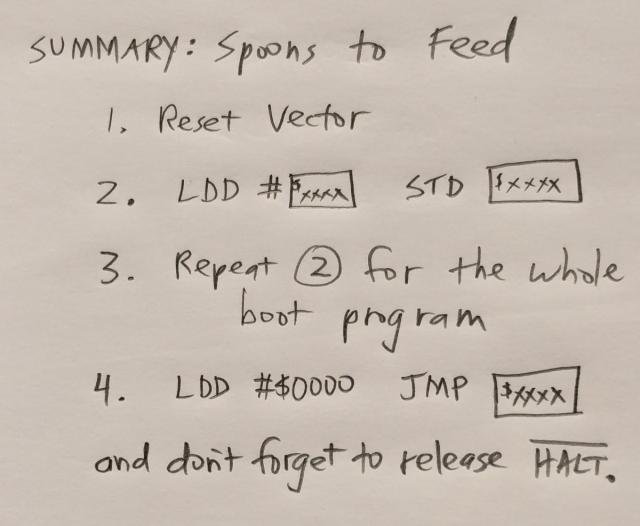 SUMMARY: Spoons to Feed
1. Reset Vector
2. LDD #$xxxx STD $xxxx
3. Repeat ② for the whole
boot program
4. LDD #$0000 JMP $xxxx
and don't forget to release H̅A̅L̅T̅.